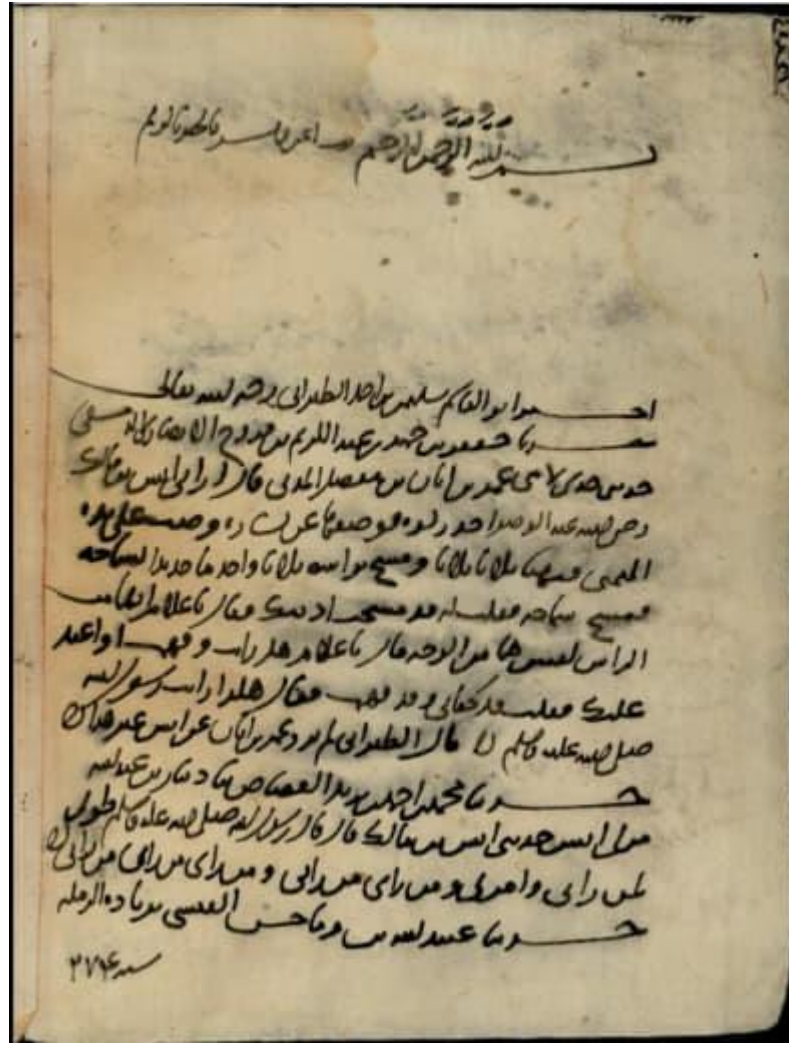 بسم الله الرحمن الرحيم رب اعن ويسر يا كريم
اخبرنا ابو القاسم سليمن بن احمد الطبراني رحمه الله تعالى
حدثنا جعفر بن حميد بن عبد الكريم بن فروخ الانصاري الدمشقي
حدثني جدي لامي عمر بن ابان بن مفضل المدني قال اراني انس بن مالك
رضي الله عنه الوضوا اخذ ركوة فوضعها عن يساره وصب على يده
اليمنى فغسلها ثلاثا ثلاثا ومسح براسه ثلاثا واخذ ماء جديدا لسماخه
فمسح سماخه فقلت له قد مسحت اذنيك فقال يا غلام انهما من
الراس ليس هما من الوجه قال يا غلام هل رايت وفهمت او اعيد
عليك فقلت قد كفاني وقد فهمت فقال هكذا رايت رسول الله
صلى الله عليه وسلم قال الطبراني لم يرو عمر بن ابان عن انس غير هذا
حدثنا محمد بن احمد بن يزيد القصاص ثنا دينار بن عبد الله
مولى انس حدثني انس بن مالك قال قال رسول الله صلى الله عليه وسلم طوبى
لمن راني وامن بي ومن راى من راني ومن راى من راى من راني
حدثنا عبيد الله بن رماحس القيسي برمادة الرملة
سنة ٢٧٤